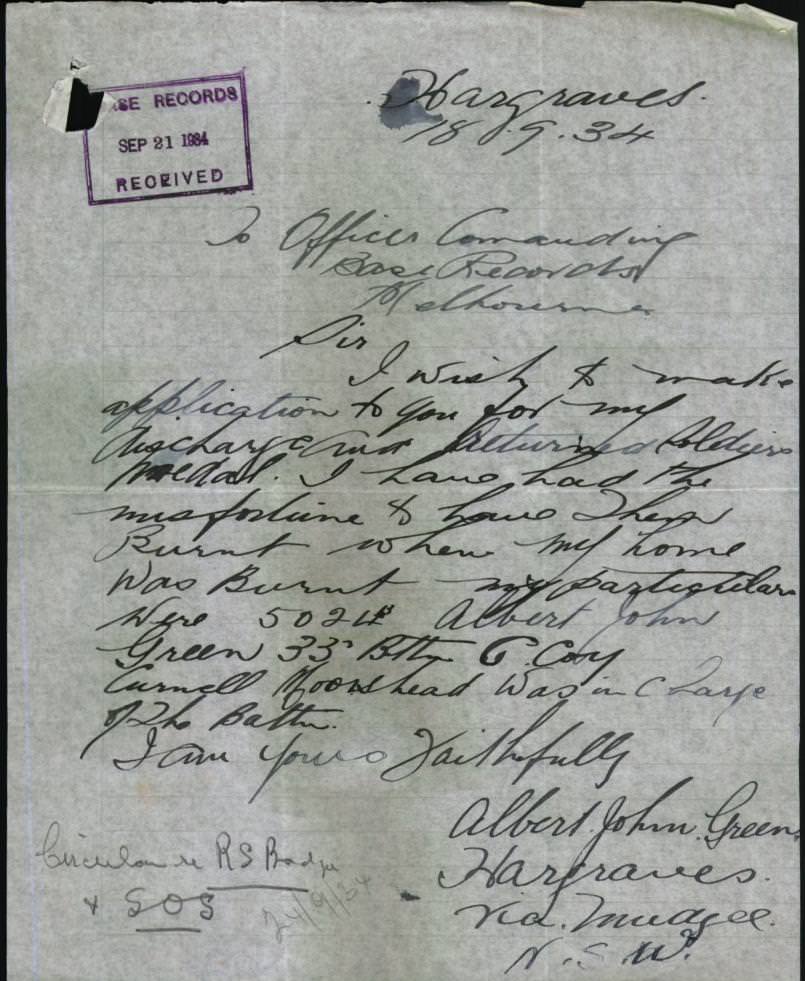 BASE RECORDS
SEP 21 1934
RECEIVED
Hargraves.
18.9.34
To Officer Comanding
Base Records
Melbourne
Sir
I wish to make
application to you for my
discharge and Returned Soldiers
medal. I have had the
misfortune to have them
Burnt when my home
Was Burnt my particulars
Were 5024 Albert John
Green 33 Bttn C. Coy
Curnell Moorshead Was in Charge
of the Battn.
I am yours Faithfully
Albert. John. Green
Hargraves.
Via. Mudgee.
N.S.W.
Circular re RS Badge
+ SOS
24/9/34